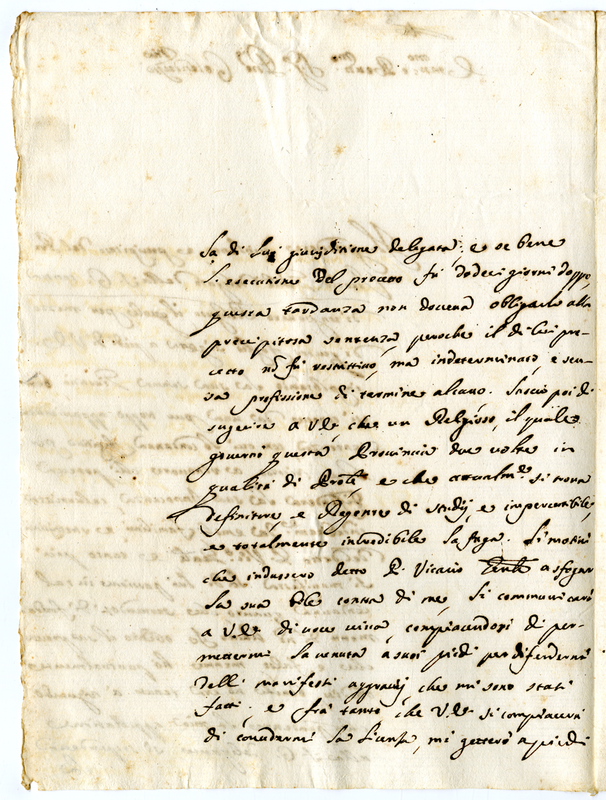 la di Lui giurisditione delegata, e se bene
l'esecutione del processo fù dodeci giorni doppo,
questa tardanza non doveva obligarlo alla
precipitosa sentenza, peroche il di lui pre-
cetto nõ fù restrittivo, ma indeterminato, e sen-
za profissione di termine alcuno. Lascio poi di
sugerire a V.R. che un Religioso, il quale
governò questa Provincia due volte in
qualità di Prõle, e che attualmte si trova
definitore, e Regente di studij, e impercettibile,
e totalmente incredibile la fuga. Li motivi
che indussero detto P. Vicario a sfogar
la sua bile contra di me, li communicarò
a V.R. di voce viva, compiacendosi di per-
mettermi la venuta a suoi piedi per difendermi
delli manifesti aggravij, che mi sono stati
fatti. e frà tanto che V.R. si compiacerà
di concedermi la licenza, mi getterò a piedi